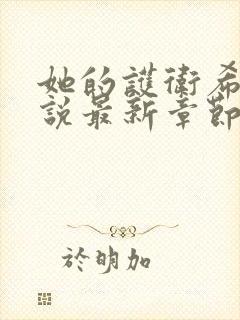 她的護衛希
說最新章節
於明加